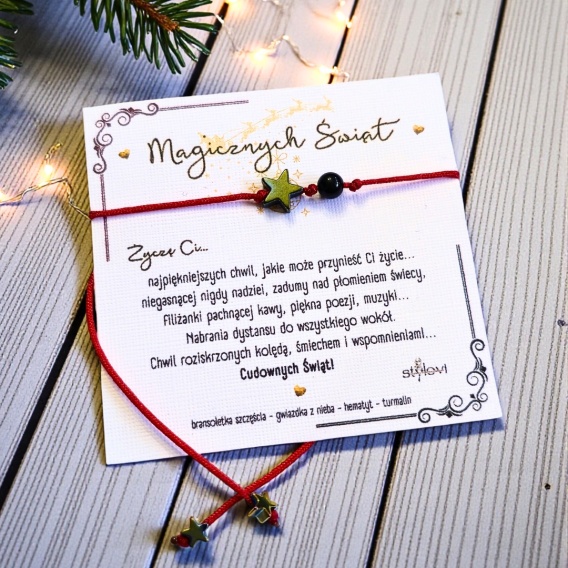 Magicznych Świąt
Życzę Ci...
najpiękniejszych chwil, jakie może przynieść Ci życie...
niegasnącej nigdy nadziei, zadumy nad płomieniem świecy.
Filiżanki pachnącej kawy, piękna poezji, muzyki...
Nabrania dystansu do wszystkiego wokół.
Chwil roziskrzonych kolędą, śmiechem i wspomnieniami...
Cudownych Świąt!
stylovi
bransoletka szczęścia - gwiazdka z nieba - hematyt - turmalin